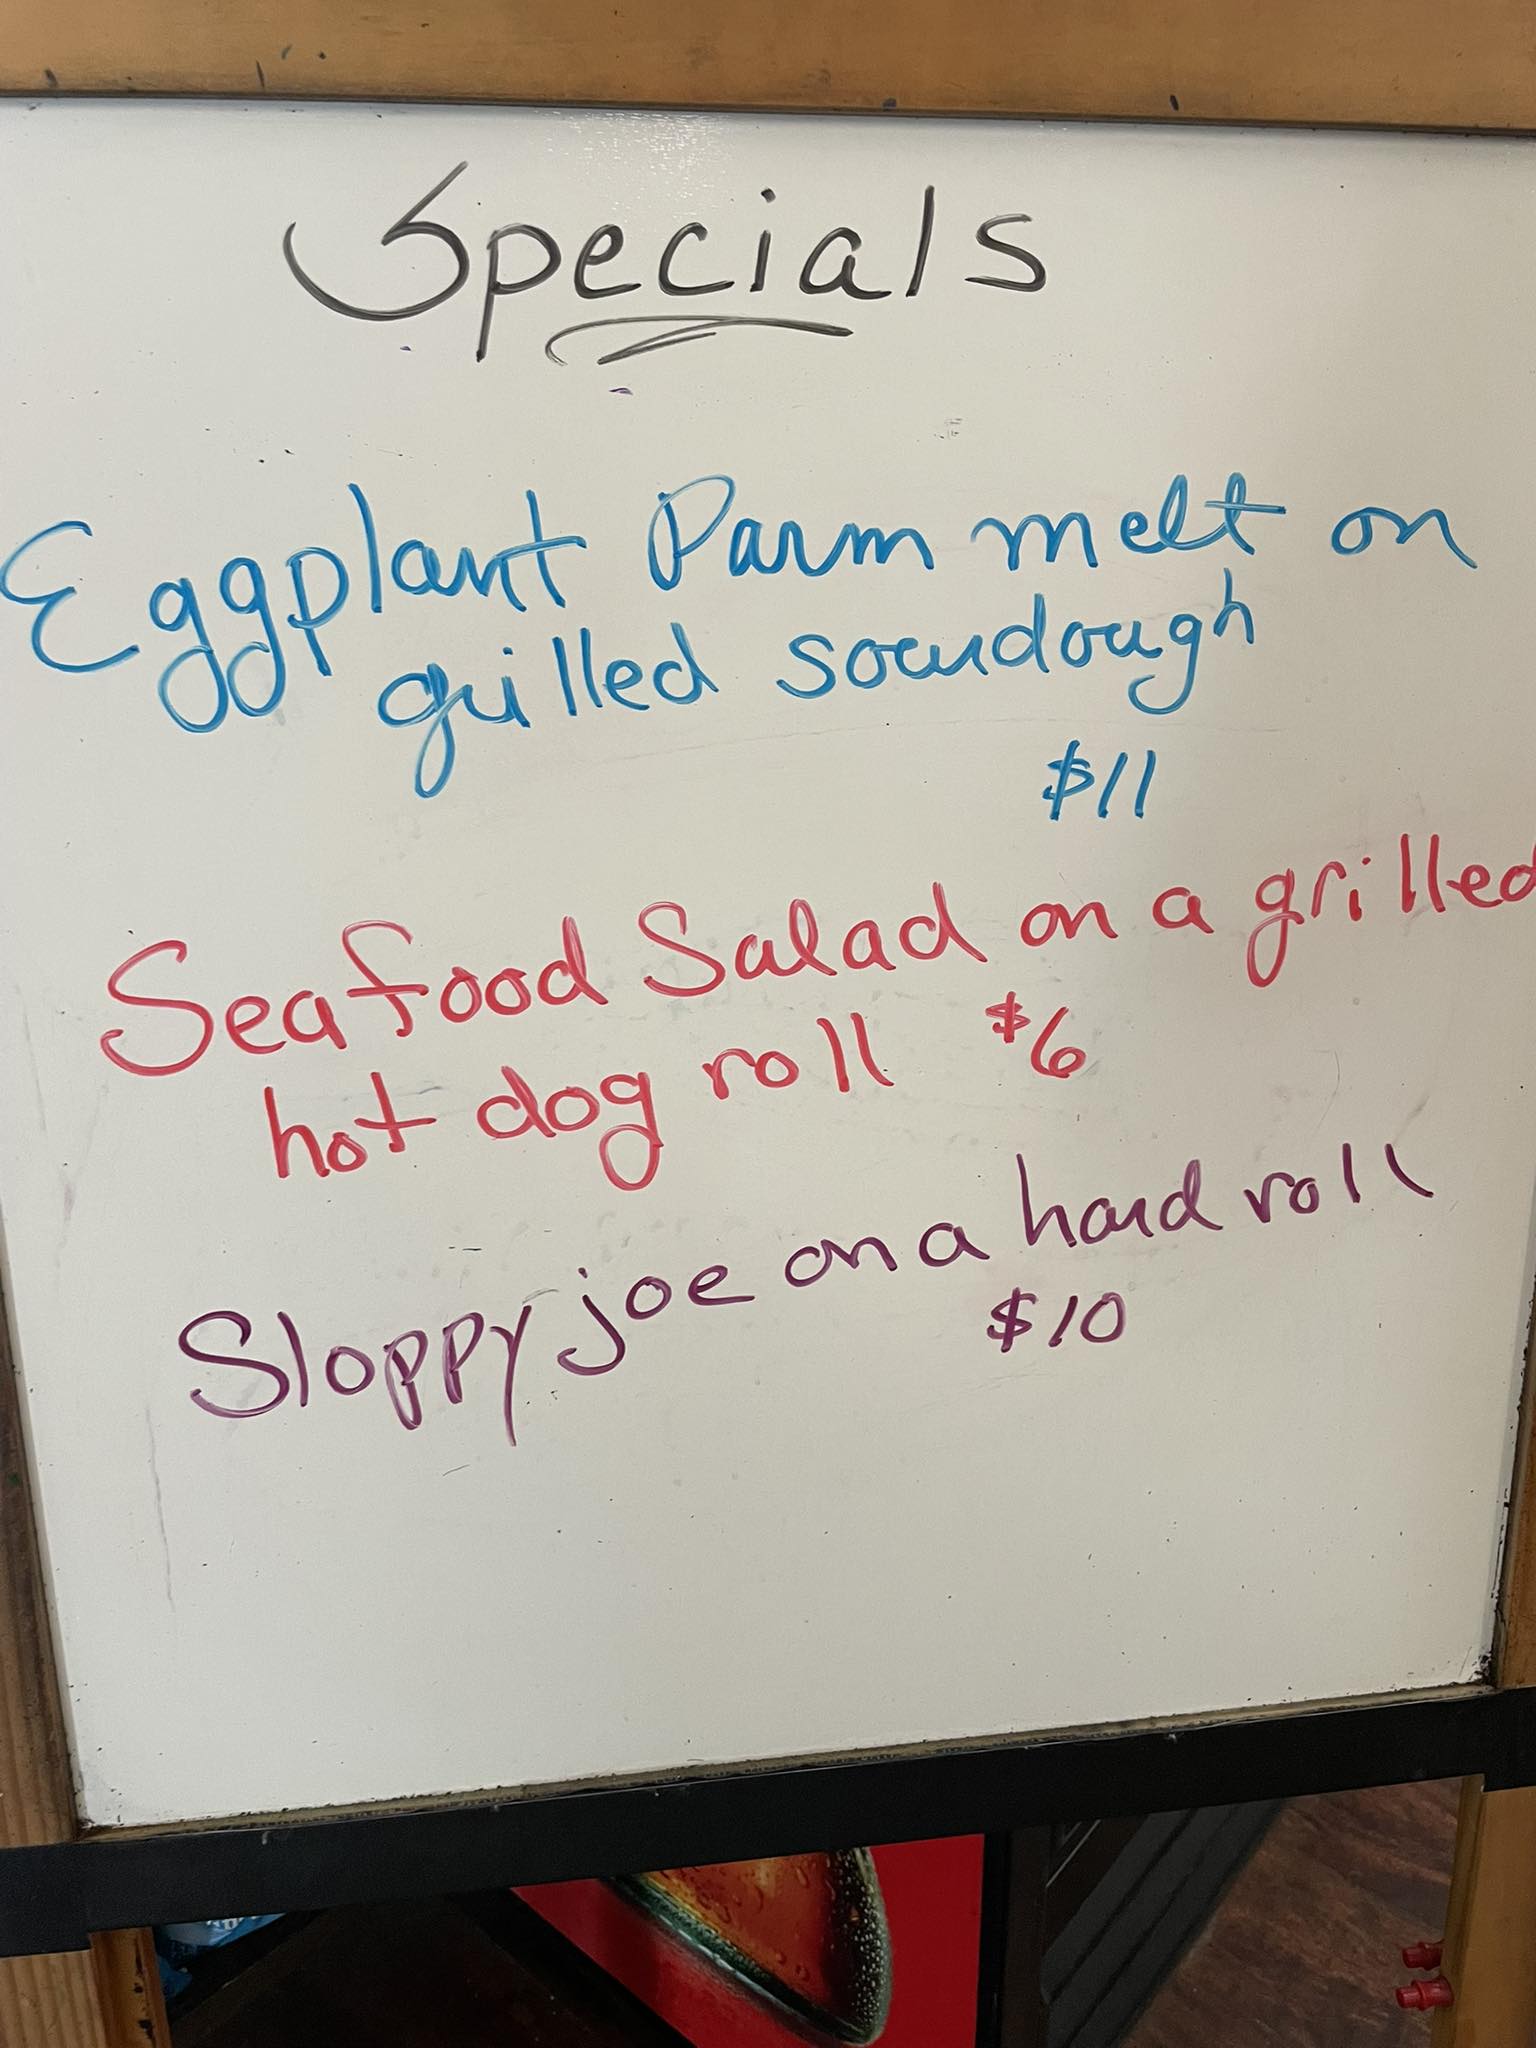 Specials
Eggplant Parm melt on
grilled sourdough
$11
Seafood Salad on a grilled
hot dog roll $6
Sloppy joe on a hard roll
$10